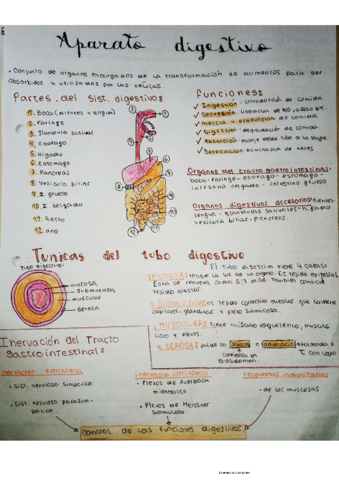 Aparato digestivo
• Conjunto de organos encargados de la transformación de alimentos para ser
absorbidos y utilizados por las células.
Partes del Sist. digestivo:
1. Boca (dientes + lengua)
2. Faringe
3. Glandula salival
4. Esofago
5. Higado
6. Estomago
7. Pancreas
8. Vesicula biliar
9. I. grueso
10. I. delgado
11. Recto
12. ano
Funciones
✓ Ingestión: introducción de comida
✓ Secreción: liberación de
✓ Mezcla y propulsion de comida
✓ Digestion: degradación de comida
✓ Absorción:
✓ Defecación: eliminacion de heces
Organos del tracto gastrointestinal:
boca - faringe - esofago - estomago -
intestino delgado - intestino grueso
Organos digestivos accesorios: dientes
lengua - glandulas salivales - higado
vesicula biliar - pancreas.
Tunicas del tubo digestivo
Tubo digestivo:
mucosa
submucosa
muscular
serosa
El tubo digestivo tiene 4 capas:
1. MUCOSA:
tejido areolar.
2. SUBMUCOSA: es tejido conectivo areolar que contiene
capilares, glandulas y plexo submucoso.
3. MUSCULAR: tiene músculo esquelético, musculo
liso y plexos.
4. SEROSA: puede ser serosa o adventicia formada x
T. con. laxo
Inervación del Tracto
Gastrointestinal:
Inervacion extrinseca
• Sist. nervioso simpatico
• Sist. nervioso parasim-
patico
Inervación intrinseca
• Plexos de Auerbach
mienterico
• Plexos de Meissner
submucoso
respuestas inmunitarias
• de las mucosas
Control de las funciones digestivas